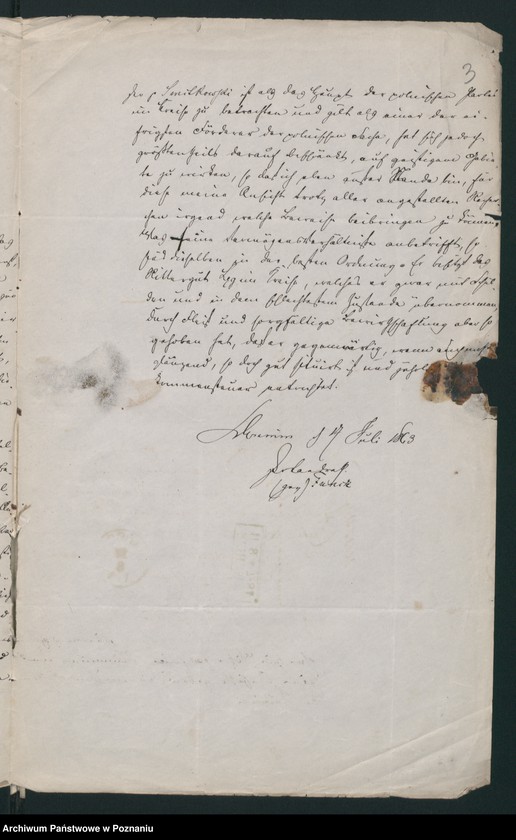 3
Der p Smitkowski ist als das Haupt der polnischen Partei
im Kreise zu betrachten und gilt als einer der ei-
frigsten Förderer der polnischen Sache, hat sich jedoch
größtentheils darauf beschränkt, auf geistigem Gebie-
te zu wirken, so daß ich eben außer Stande bin, für
diese meine Ansicht trotz aller angestellten Recher-
chen irgend welche Beweise beibringen zu können.
Was seine Vermögensverhältnisse anbetrifft, so
sind dieselben in der besten Ordnung. Er besitzt das
Rittergut im Kreise, welches er zwar mit Schul-
den und in dem schlechtesten Zustande übernommen,
durch Fleiß und sorgfältige Bewirthschaftung aber so
gehoben hat, daß er gegenwärtig, wenn auch nicht
glänzend, so doch gut situirt ist und
kommensteuer entrichtet.
d 17 Juli 1863
Der Landrath.
(gez)
Archiwum Państwowe w Poznaniu